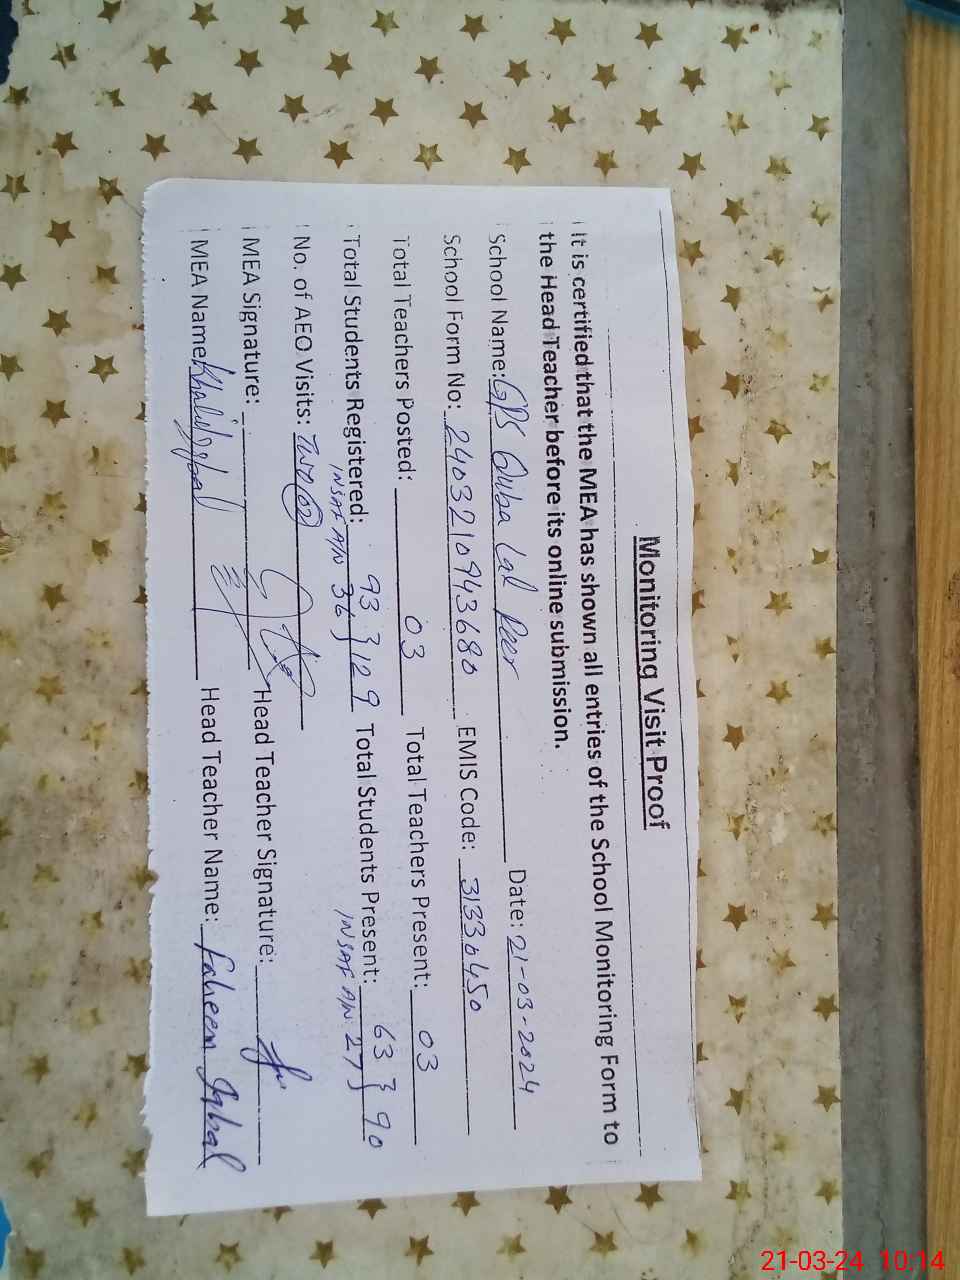 Monitoring Visit Proof
It is certified that the MEA has shown all entries of the School Monitoring Form to
the Head Teacher before its online submission.
School Name: GPS Quba Lal Peer Date: 21-03-2024
School Form No: 2403210943680 EMIS Code: 31330450
Total Teachers Posted: 03 Total Teachers Present: 03
Total Students Registered: 93 } 129 Total Students Present: 63 } 90
INSAF A/N 36 INSAF A/N 27
No. of AEO Visits: Two (02)
MEA Signature: Head Teacher Signature:
MEA Name: Khalid Iqbal Head Teacher Name: Faheem Iqbal
21-03-24 10:14